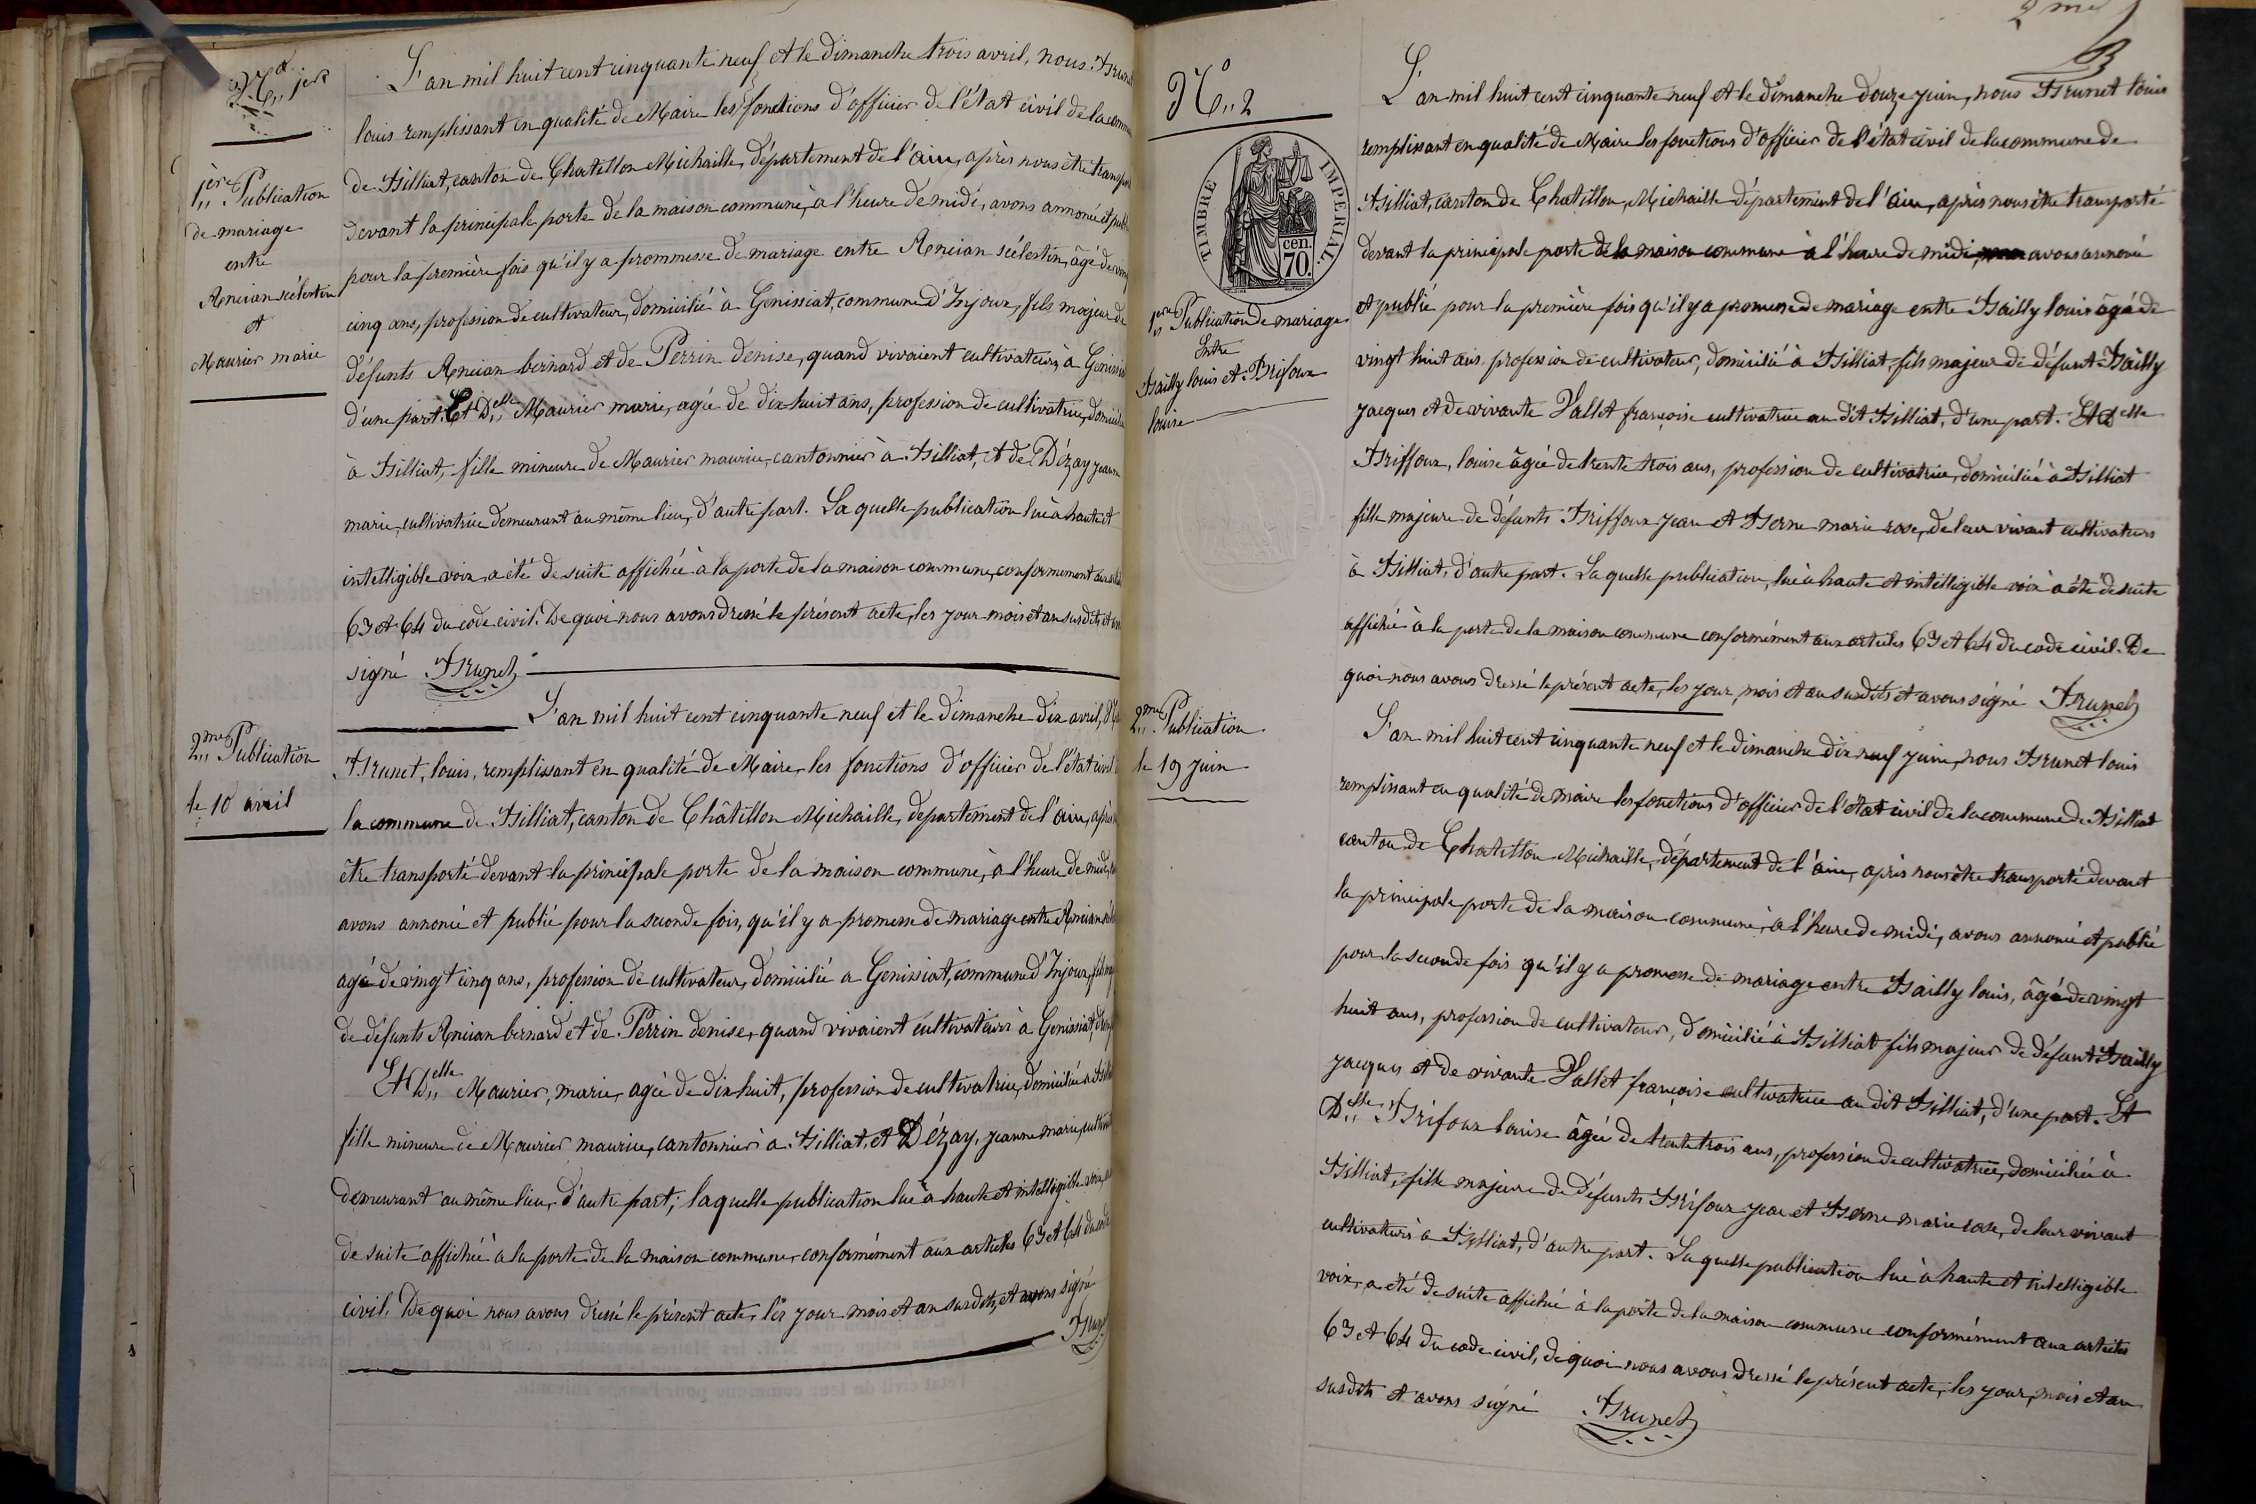 N.° 1er
1ère Publication
de mariage
entre
Ancian scélestin
et
Maurier marie
L'an mil huit cent cinquante neuf et le dimanche trois avril, nous Brunet
louis remplissant en qualité de Maire les fonctions d'officier de l'état civil de la commune
de Billiat, canton de Chatillon Michaille, département de l'ain, après nous être transporté
devant la principale porte de la maison commune, à l'heure de midi, avons annoncé et publié
pour la première fois qu'il y a prommesse de mariage entre Ancian scélestin, âgé de vingt
cinq ans, profession de cultivateur, domicilié à Genissiat, commune d'Injoux, fils majeur de
défunts Ancian bernard et de Perrin denise, quand vivaient cultivateurs à Genissiat
d'une part. Et Delle Maurier marie, agée de dix huit ans, profession de cultivatrice, domiciliée
à Billiat, fille mineure de Maurier maurice, cantonnier à Billiat, et de Dézay jeanne
marie, cultivatrice demeurant au même lieu, d'autre part. La quelle publication lue à haute et
intelligible voix, a été de suite affichée à la porte de la maison commune, conformement aux articles
63 et 64 du code civil. De quoi nous avons dressé le présent acte, les jour mois et an susdits, et avons
signé Brunet
2me Publication
le 10 avril
L'an mil huit cent cinquante neuf et le dimanche dix avril, Nous
Brunet, louis, remplissant en qualité de Maire, les fonctions d'officier de l'état civil de
la commune de Billiat, canton de Châtillon Michaille, département de l'ain, après
être transporté devant la principale porte de la maison commune, à l'heure de midi,
avons annoncé et publié pour la seconde fois, qu'il y a promesse de mariage entre Ancian
agé de vingt cinq ans, profession de cultivateur, domicilié a Genissiat, commune d'Injoux, fils
de défunts Ancian bernard et de Perrin denise, quand vivaient cultivateurs à Genissiat,
Et Delle Maurier, marie, agée de dix huit, profession de cultivatrice, domiciliée à Billiat
fille mineure de Maurier maurice, cantonnier à Billiat, et Dézay, jeanne marie, cultivatrice
demeurant au même lieu, d'autre part; laquelle publication lue à haute et intelligible voix,
de suite affichée à la porte de la maison commune, conformément aux articles 63 et 64 du code
civil. De quoi nous avons dressé le présent acte, les jour mois et an susdits, et avons signé
Brunet
2me
N.° 2
TIMBRE IMPERIAL.
cen.
70.
1ère Publication de mariage
Entre
Bailly louis et Brifoux
louise
L'an mil huit cent cinquante neuf et le dimanche douze juin, nous Brunet louis
remplissant en qualité de Maire les fonctions d'officier de l'état civil de la commune de
Billiat, canton de Chatillon, Michaille département de l'ain, après nous être transporté
devant la principale porte de la maison commune à l'heure de midi, avons annoncé
et publié pour la première fois qu'il y a promesse de mariage entre Bailly louis âgé de
vingt huit ans, profession de cultivateur, domicilié à Billiat, fils majeur de défunt Bailly
jacques et de vivante Vallet françoise cultivatrice au dit Billiat, d'une part. Et Delle
Briffoux, louise âgée de trente trois ans, profession de cultivatrice, domiciliée à Billiat
fille majeure de défunts Briffoux jean et Borne marie rose, de leur vivant cultivateurs
à Billiat, d'autre part. La quelle publication, lue à haute et intelligible voix à été de suite
affichée à la porte de la maison commune conformément aux articles 63 et 64 du code civil. De
quoi nous avons dressé le présent acte, les jour, mois et an susdits et avons signé Brunet
2me Publication
le 19 juin
L'an mil huit cent cinquante neuf et le dimanche dix neuf juin, nous Brunet louis
remplissant en qualité de maire les fonctions d'officier de l'état civil de la commune de Billiat
canton de Chatillon Michaille, département de l'ain, après nous être transporté devant
la principale porte de la maison commune, à l'heure de midi, avons annoncé et publié
pour la seconde fois qu'il y a promesse de mariage entre Bailly louis, âgé de vingt
huit ans, profession de cultivateur, domicilié à Billiat fils majeur de défunt Bailly
jacques et de vivante Vallet françoise cultivatrice au dit Billiat, d'une part. Et
Delle Brifoux louise âgée de trente trois ans, profession de cultivatrice, domiciliée à
Billiat, fille majeure de défunts Brifoux jean et Borne marie rose, de leur vivant
cultivateurs à Billiat, d'autre part. La quelle publication lue à haute et intelligible
voix, a été de suite affichée à la porte de la maison commune conformément aux articles
63 et 64 du code civil, de quoi nous avons dressé le présent acte, les jour, mois et an
susdits et avons signé Brunet